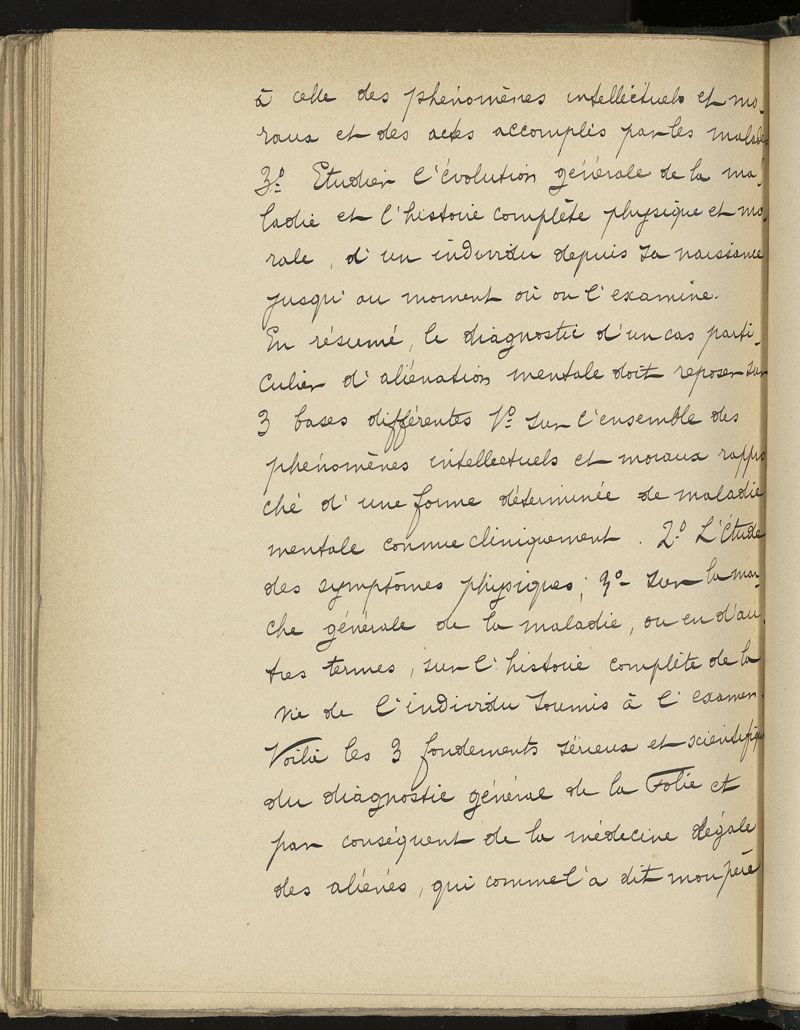 à celle des phénomènes intellectuels et mo-
raux et des actes accomplis par les malades
3º Etudier l'évolution générale de la ma-
ladie et l'histoire complète physique et mo-
rale, d'un individu depuis sa naissance
jusqu'au moment où on l'examine.
En résumé, le diagnostic d'un cas parti-
culier d'aliénation mentale doit reposer sur
3 bases différentes 1º sur l'ensemble des
phénomènes intellectuels et moraux rappro
ché d'une forme déterminée de maladie
mentale connue cliniquement. 2º L'Étude
des symptômes physiques; 3º sur la mar-
che générale de la maladie, ou en d'au-
tres termes, sur l'histoire complète de la
vie de l'individu soumis à l'examen.
Voilà les 3 fondements sérieux et scientifiques
du diagnostic général de la Folie et
par conséquent de la médecine légale
des aliénés, qui comme l'a dit mon père